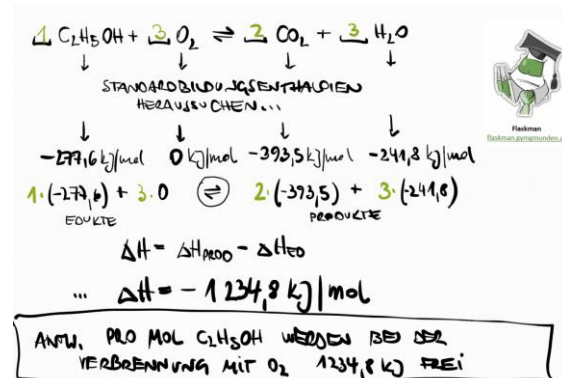 1 C2H5OH + 3 O2 ⇌ 2 CO2 + 3 H2O
↓ ↓ ↓ ↓
STANDARDBILDUNGSENTHALPIEN
HERAUSSUCHEN...
↓ ↓ ↓ ↓
-277,6 kJ/mol 0 kJ/mol -393,5 kJ/mol -241,8 kJ/mol
1·(-277,6) + 3·0 ⇌ 2·(-393,5) + 3·(-241,8)
EDUKTE PRODUKTE
ΔH = ΔHPROD - ΔHED
... ΔH = -1234,8 kJ/mol
ANTW. PRO MOL C2H5OH WERDEN BEI DER
VERBRENNUNG MIT O2 1234,8 kJ FREI
Flaskman
flaskman.gymgmunden.at